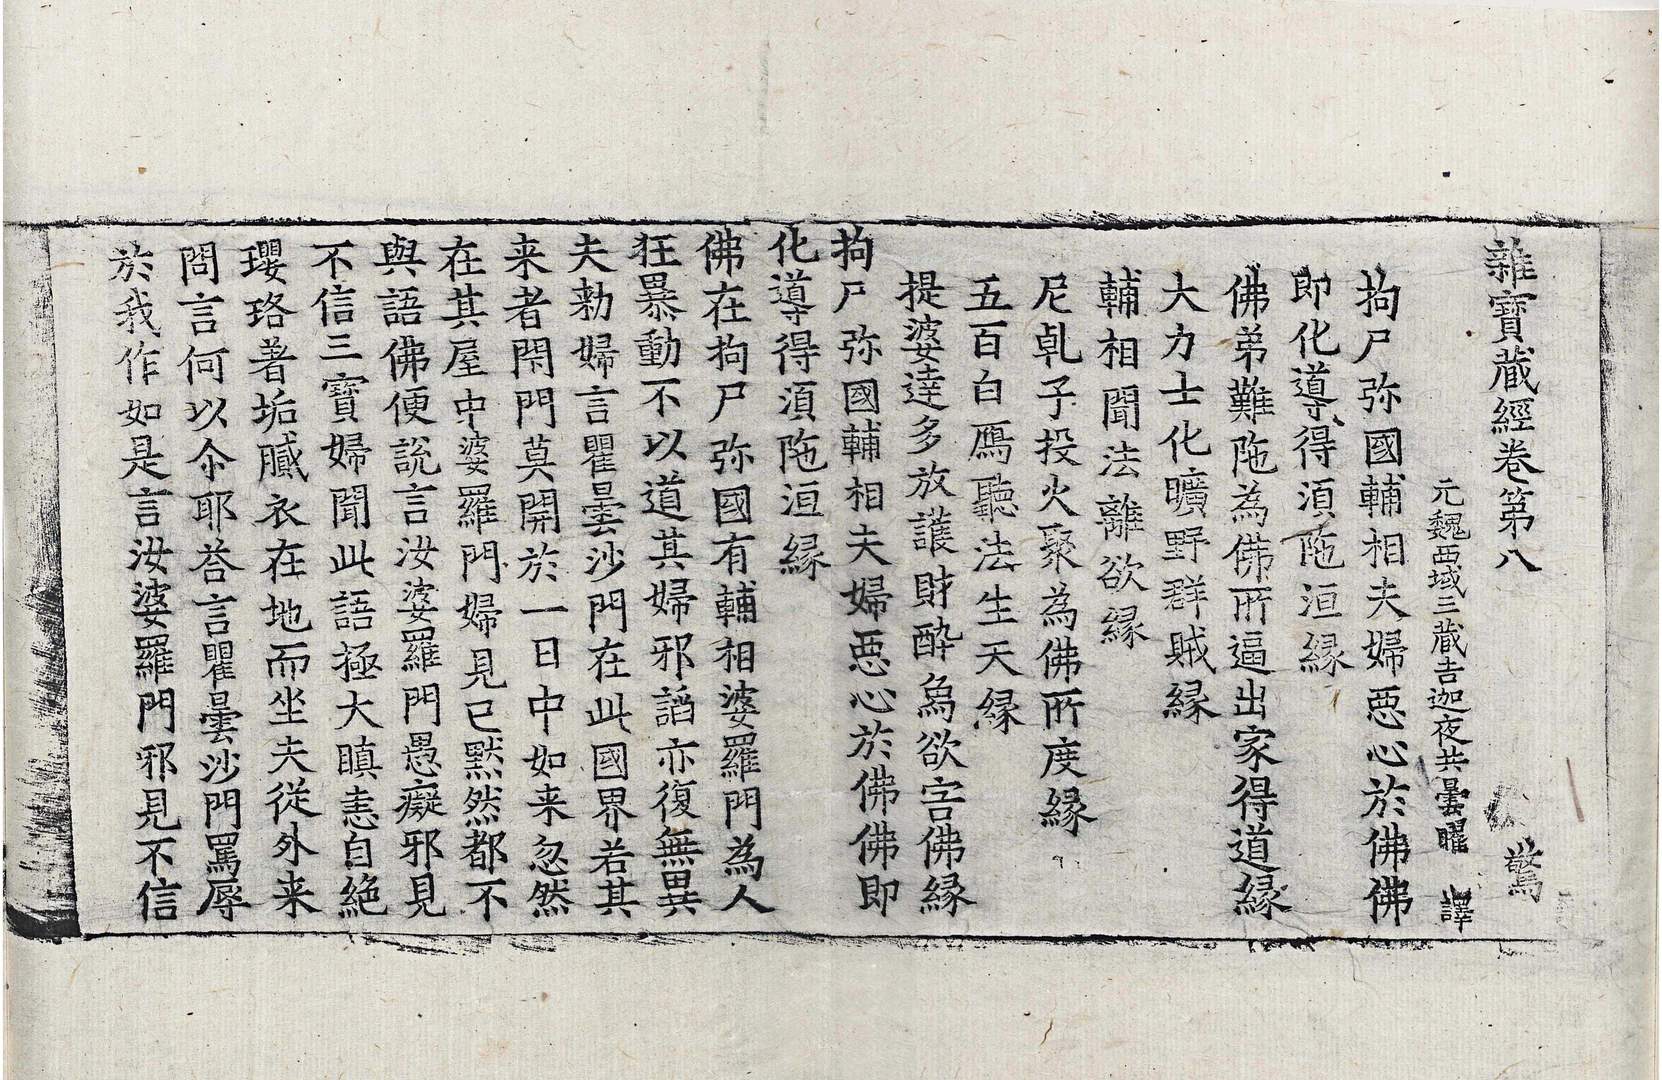 雜寶藏經卷第八 驚
元魏西域三藏吉迦夜共曇曜 譯
拘尸弥國輔相夫婦惡心於佛佛
即化導得湏陁洹縁
佛弟難陁為佛所逼出家得道縁
大力士化曠野群賊縁
輔相聞法離欲縁
尼乹子投火聚為佛所度縁
五百白鴈聽法生天縁
提婆達多放護財醉象欲害佛縁
拘尸弥國輔相夫婦惡心於佛佛即
化導得湏陁洹縁
佛在拘尸弥國有輔相婆羅門為人
狂暴動不以道其婦邪謟亦復無異
夫勑婦言瞿曇沙門在此國界若其
来者閇門莫開於一日中如来忽然
在其屋中婆羅門婦見已默然都不
與語佛便說言汝婆羅門愚癡邪見
不信三寶婦聞此語極大瞋恚自絶
瓔珞著垢膩衣在地而坐夫從外来
問言何以尒耶荅言瞿曇沙門罵辱
於我作如是言汝婆羅門邪見不信